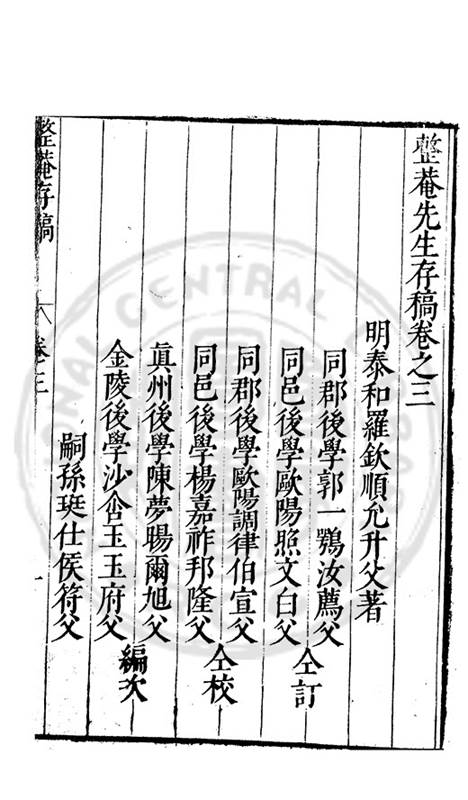 整菴先生存稿卷之三
明泰和羅欽順允升父著
同郡後學郭一鶚汝薦父
同邑後學歐陽照文白父
仝訂
同郡後學歐陽調律伯宣父
同邑後學楊嘉祚邦隆父
仝校
眞州後學陳夢暘爾旭父
金陵後學沙畣玉玉府父
編次
嗣孫珽仕侯符父
整菴存稿
卷之三
一
NATIONAL CENTRAL